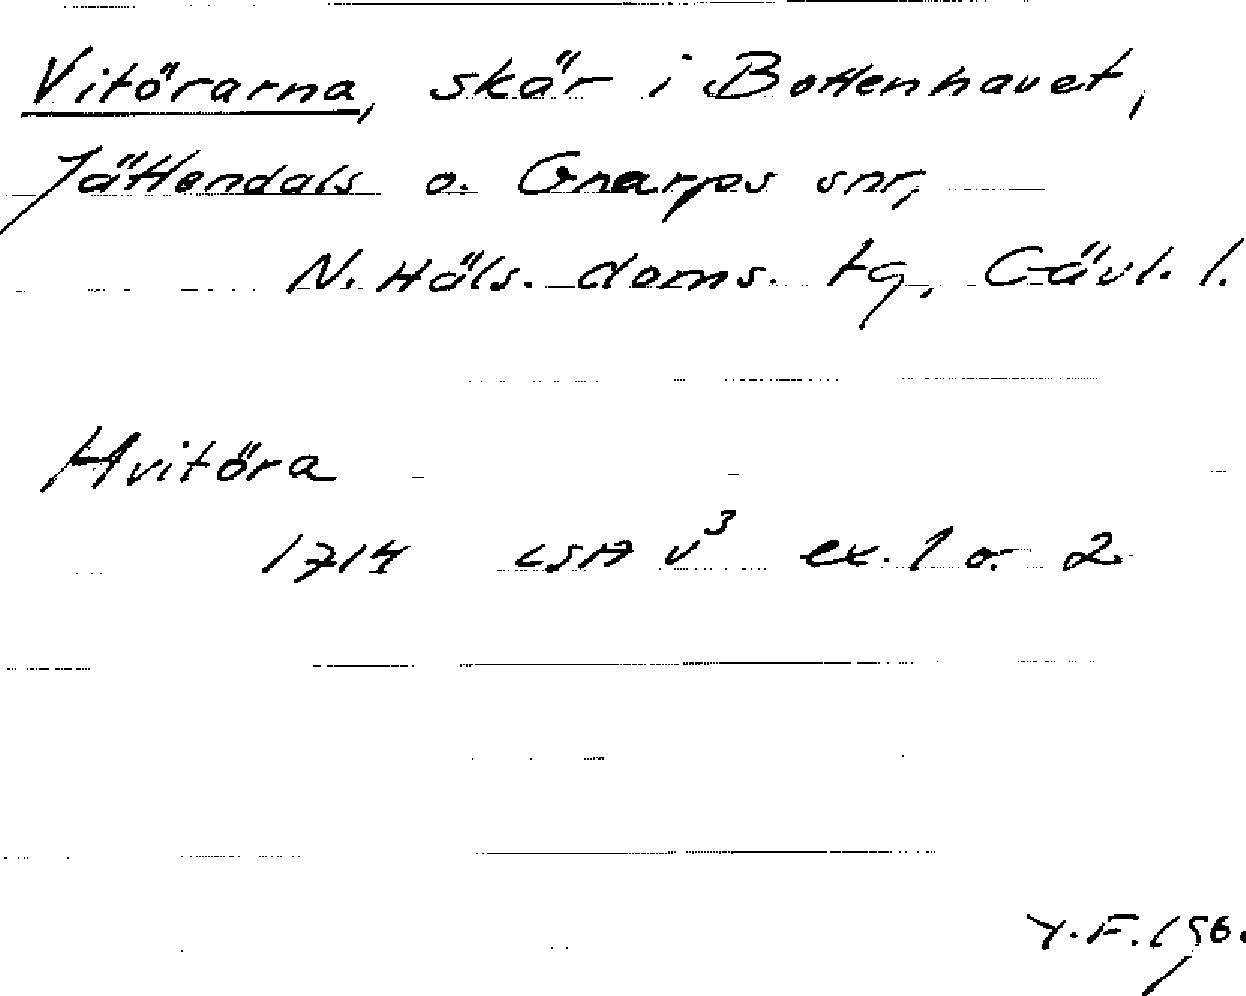 Vitörarna, skär i Bottenhavet,
Jättendals o. Gnarps snr,
N. Häls. doms. tg, Gävl. l.
Hvitöra
1714 LSA V³ ex. 1 o. 2
Y. F. 156.